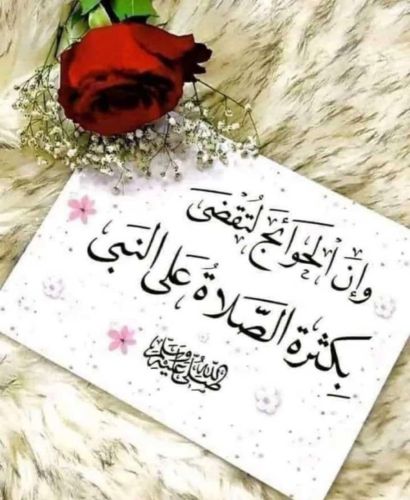 وإن الحوائج لتُقضى
بكثرة الصَّلاةُ على النبي
صلى الله عليه وسلم